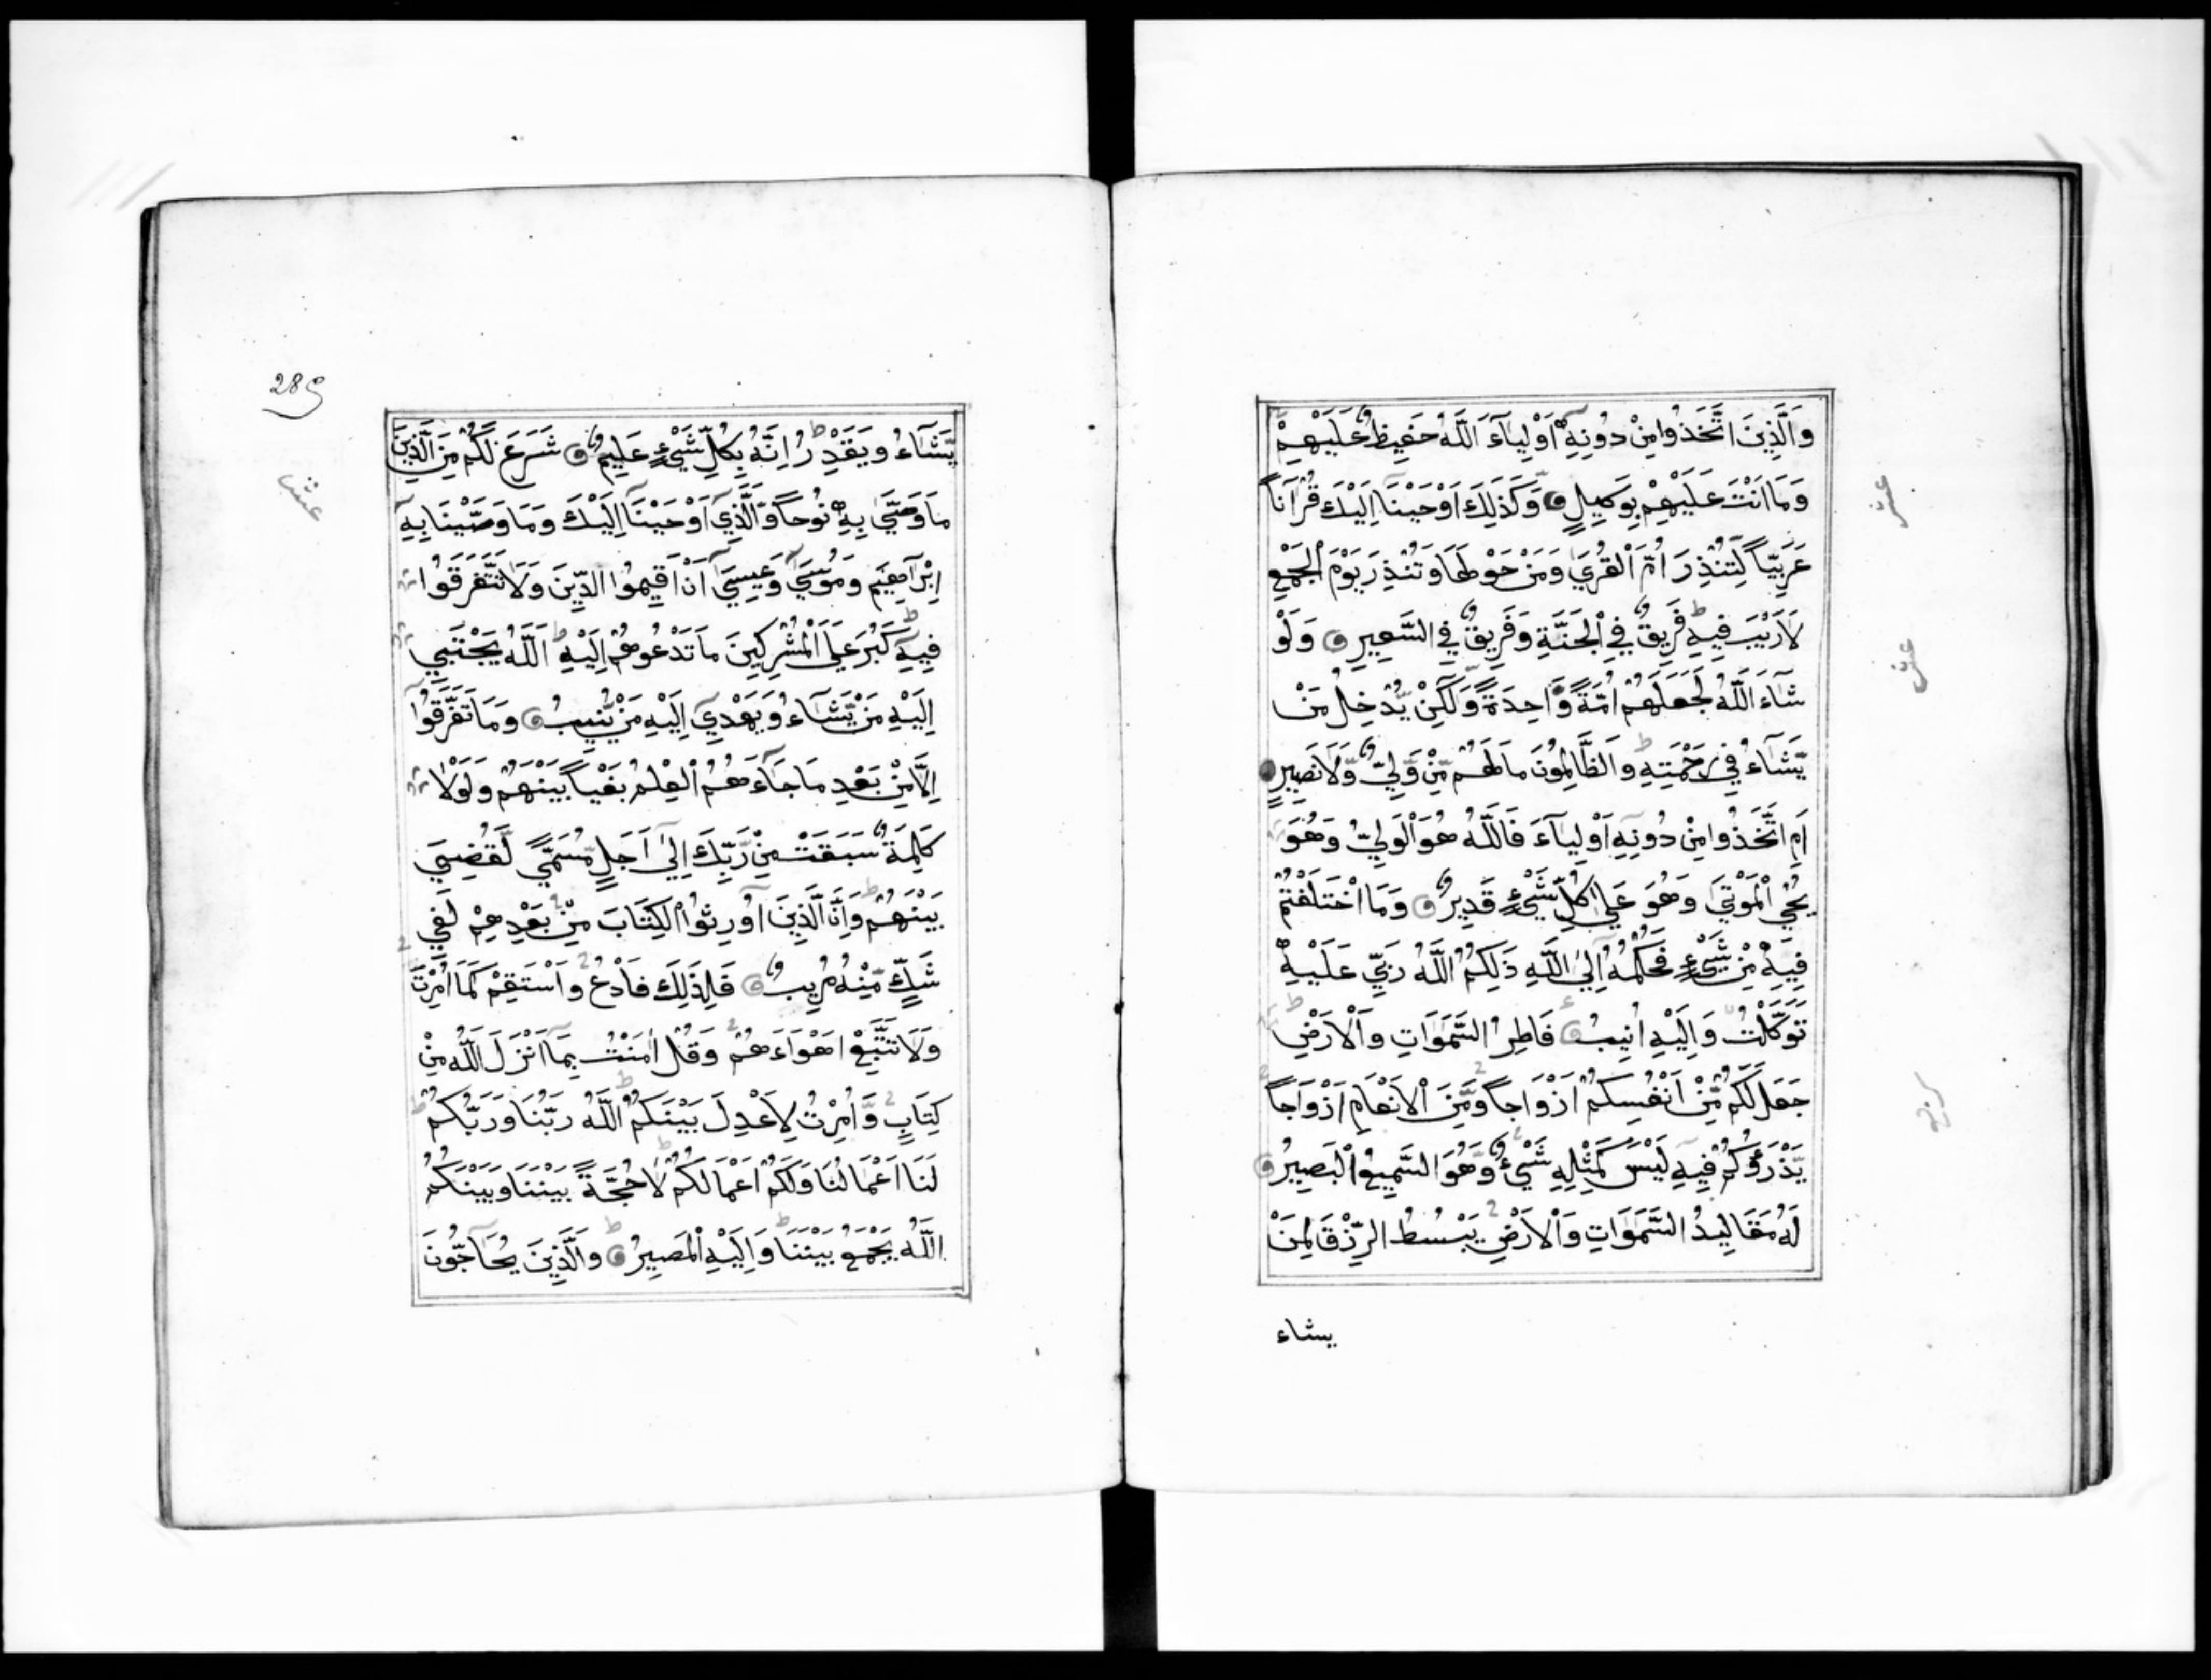 وَالَّذِينَ اتَّخَذُوا مِنْ دُونِهِ أَوْلِيَآءَ اللَّهُ حَفِيظٌ عَلَيْهِمْ
وَمَا اَنْتَ عَلَيْهِمْ بِوَكِيلٍ وَكَذَلِكَ اَوْحَيْنَا اِلَيْكَ قُرْآناً
عَرَبِيّاً لِتُنْذِرَ اُمَّ الْقُرَي وَمَنْ حَوْلَهَا وَتُنْذِرَ يَوْمَ الْجَمْعِ
لاَ رَيْبَ فِيهِ فَرِيقٌ فِي الْجَنَّةِ وَفَرِيقٌ فِي السَّعِيرِ وَلَوْ
شَآءَ اللَّهُ لَجَعَلَهُمْ اُمَّةً وَّاحِدَةً وَّلَكِنْ يُّدْخِلُ مَنْ
يَّشَآءُ فِي رَحْمَتِهِ وَالظَّالِمُونَ مَا لَهُمْ مِّنْ وَّلِيٍّ وَّلاَ نَصِيرٍ
اَمِ اتَّخَذُوا مِنْ دُونِهِ اَوْلِيَآءَ فَاللَّهُ هُوَ الْوَلِيُّ وَهُوَ
يُحْيِ الْمَوْتَي وَهُوَ عَلَي كُلِّ شَيْءٍ قَدِيرٌ وَمَا اخْتَلَفْتُمْ
فِيهِ مِنْ شَيْءٍ فَحُكْمُهُ اِلَي اللَّهِ ذَلِكُمُ اللَّهُ رَبِّي عَلَيْهِ
تَوَكَّلْتُ وَاِلَيْهِ اُنِيبُ فَاطِرُ السَّمَوَاتِ وَالْاَرْضِ
جَعَلَ لَكُمْ مِّنْ اَنْفُسِكُمْ اَزْوَاجاً وَّمِنَ الْاَنْعَامِ اَزْوَاجاً
يَّذْرَؤُكُمْ فِيهِ لَيْسَ كَمِثْلِهِ شَيْءٌ وَّهُوَ السَّمِيعُ الْبَصِيرُ
لَهُ مَقَالِيدُ السَّمَوَاتِ وَالْاَرْضِ يَبْسُطُ الرِّزْقَ لِمَنْ
يشاء
289
يَّشَآءُ وَيَقْدِرُ اِنَّهُ بِكُلِّ شَيْءٍ عَلِيمٌ شَرَعَ لَكُمْ مِنَ الدِّينِ
مَا وَصَّي بِهِ نُوحاً وَّالَّذِي اَوْحَيْنَا اِلَيْكَ وَمَا وَصَّيْنَا بِهِ
اِبْرَاهِيمَ وَمُوسَي وَعِيسَي اَنْ اَقِيمُوا الدِّينَ وَلاَ تَتَفَرَّقُوا
فِيهِ كَبُرَ عَلَي الْمُشْرِكِينَ مَا تَدْعُوهُمْ اِلَيْهِ اَللَّهُ يَجْتَبِي
اِلَيْهِ مَنْ يَّشَآءُ وَيَهْدِي اِلَيْهِ مَنْ يُّنِيبُ وَمَا تَفَرَّقُوا
اِلاَّ مِنْ بَعْدِ مَا جَآءَهُمُ الْعِلْمُ بَغْياً بَيْنَهُمْ وَلَوْلاَ
كَلِمَةٌ سَبَقَتْ مِنْ رَّبِّكَ اِلَي اَجَلٍ مُّسَمًّي لَّقُضِيَ
بَيْنَهُمْ وَاِنَّ الَّذِينَ اُورِثُوا الْكِتَابَ مِنْ بَعْدِهِمْ لَفِي
شَكٍّ مِّنْهُ مُرِيبٍ فَلِذَلِكَ فَادْعُ وَاسْتَقِمْ كَمَا اُمِرْتَ
وَلاَ تَتَّبِعْ اَهْوَاءَهُمْ وَقُلْ اٰمَنْتُ بِمَا اَنْزَلَ اللَّهُ مِنْ
كِتَابٍ وَّاُمِرْتُ لِاَعْدِلَ بَيْنَكُمُ اللَّهُ رَبُّنَا وَرَبُّكُمْ
لَنَا اَعْمَالُنَا وَلَكُمْ اَعْمَالُكُمْ لاَ حُجَّةَ بَيْنَنَا وَبَيْنَكُمُ
اللَّهُ يَجْمَعُ بَيْنَنَا وَاِلَيْهِ الْمَصِيرُ وَالَّذِينَ يُحَآجُّونَ